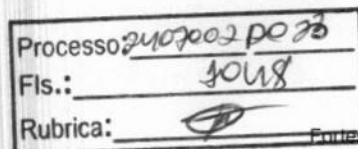 Processo: 2407002 DO 23
Fls.: 1048
Rubrica:
Forte